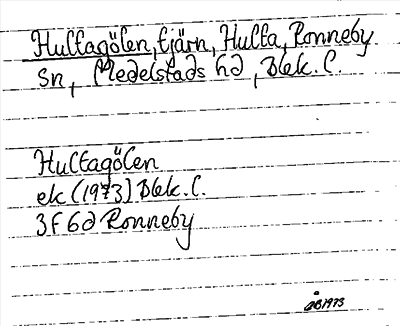 Hultagölen, tjärn, Hulta, Ronneby
sn, Medelstads hd, Blek. l.
Hultagölen
ek (1973) Blek. l.
3F6d Ronneby
1973